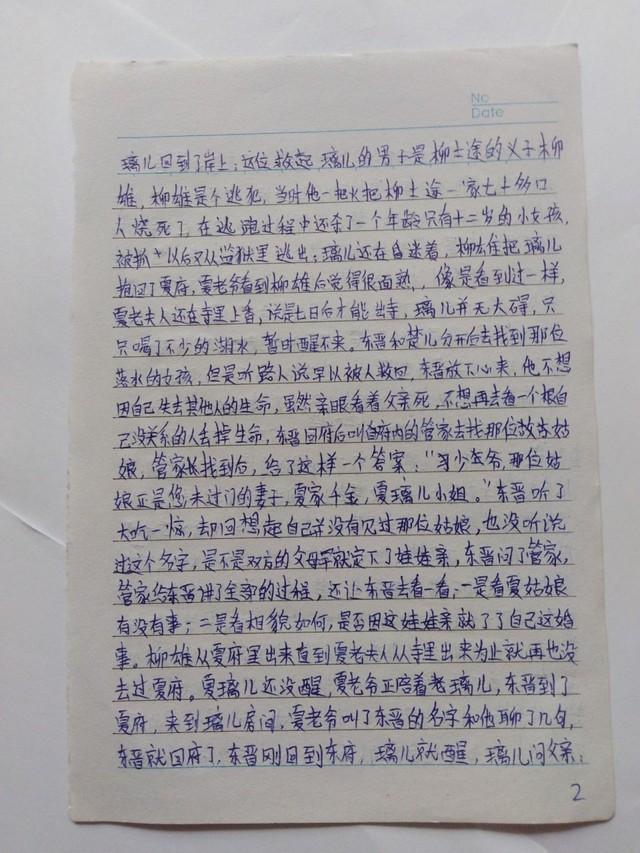 No
Date
璃儿回到了岸上；这位救起璃儿的男子是柳士途的义子柳
雄，柳雄是个逃犯，当时他一把火把柳士途一家七十多口
人烧死了，在逃跑过程中还杀了一个年龄只有十二岁的小女孩，
被抓以后又从监狱里逃出；璃儿还在昏迷着，柳雄把璃儿
抱回了夏府，夏老爷看到柳雄后觉得很面熟，像是看到过一样，
夏老夫人还在寺里上香，说是七日后才能出寺，璃儿并无大碍，只
只喝了不少的湖水，暂时醒不来。东晋和楚儿分开后去找到那位
落水的女孩，但是听路人说早以被人救回，东晋放下心来，他不想
因自己失去其他人的生命，虽然亲眼看着父亲死，不想再去看一个根自
己没关系的人去掉生命，东晋回府后叫自府内的管家去找那位姑
娘，管家长找到后，给了这样一个答案："习少爷，那位姑
娘正是您未过门的妻子，夏家千金，夏璃儿小姐。"东晋听了
大吃一惊，却回想起自己并没有见过那位姑娘，也没听说
过这个名字，是不是双方的父母早就定下了娃娃亲，东晋问了管家，
管家给东晋讲了全部的过程，还让东晋去看一看；一是看夏姑娘
有没有事；二是看相貌如何，是否因这娃娃亲就了了自己这婚
事。柳雄从夏府里出来直到夏老夫人从寺里出来为止就再也没
去过夏府。夏璃儿还没醒，夏老爷正陪着老璃儿，东晋到了
夏府，来到璃儿房间，夏老爷叫了东晋的名字和他聊了几句，
东晋就回府了，东晋刚回到东府，璃儿就醒，璃儿问父亲：
2